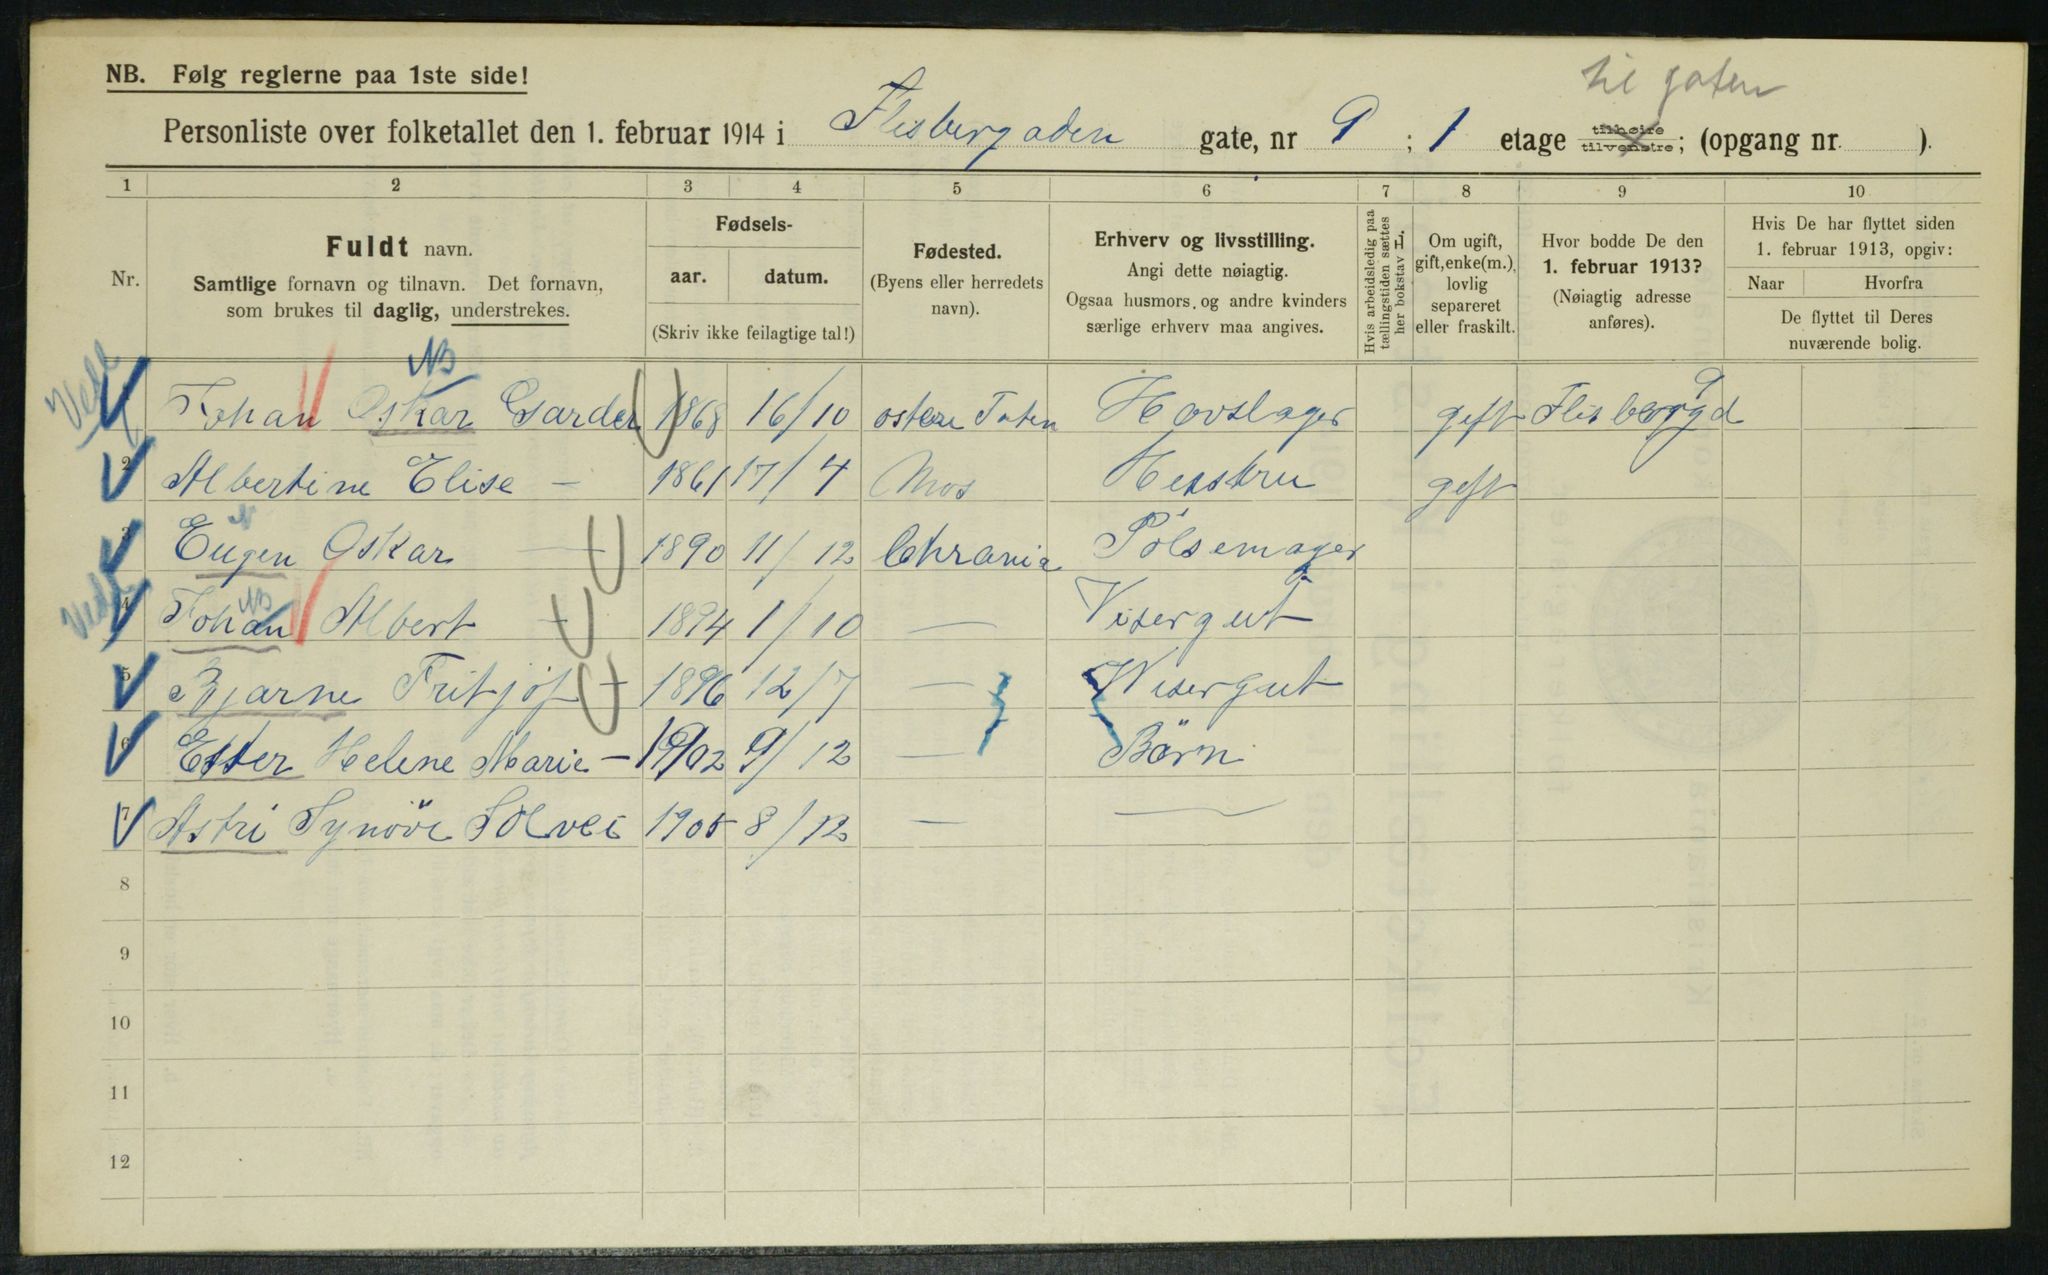 til gaten
NB. Følg reglerne paa 1ste side!
Personliste over folketallet den 1. februar 1914 i Flisbergaden gate, nr 9 ; 1 etage tilhøire tilvenstre; (opgang nr. ).
1 2 3 4 5 6 7 8 9 10
Nr.
Fuldt navn.
Samtlige fornavn og tilnavn. Det fornavn, som brukes til daglig, understrekes.
Fødsels-
aar. datum.
(Skriv ikke feilagtige tal!)
Fødested.
(Byens eller herredets navn).
Erhverv og livsstilling.
Angi dette nøiagtig.
Ogsaa husmors og andre kvinders særlige erhverv maa angives.
Hvis arbeidsledig paa tællingstiden sættes her bokstav H.
Om ugift, gift, enke(m.), lovlig separeret eller fraskilt.
Hvor bodde De den 1. februar 1913?
(Nøiagtig adresse anføres).
Hvis De har flyttet siden 1. februar 1913, opgiv:
Naar Hvorfra
De flyttet til Deres nuværende bolig.
NB
Johan Oskar Garder 1868 16/10 ostere Toten Hovslager geft Flisberggd 9
2 Albertine Elise — 1861 17/4 Mos Hustru geft
3 Eugen Oskar — 1890 11/12 Chrania Pölsemager
NB
4 Johan Albert — 1894 1/10 — Visergut
5 Bjarne Fritjof — 1896 12/7 — Visergut
6 Ester Helene Marie — 1902 9/12 — Börn
7 Astri Synöve Solvei 1905 8/12 — —
8
9
10
11
12